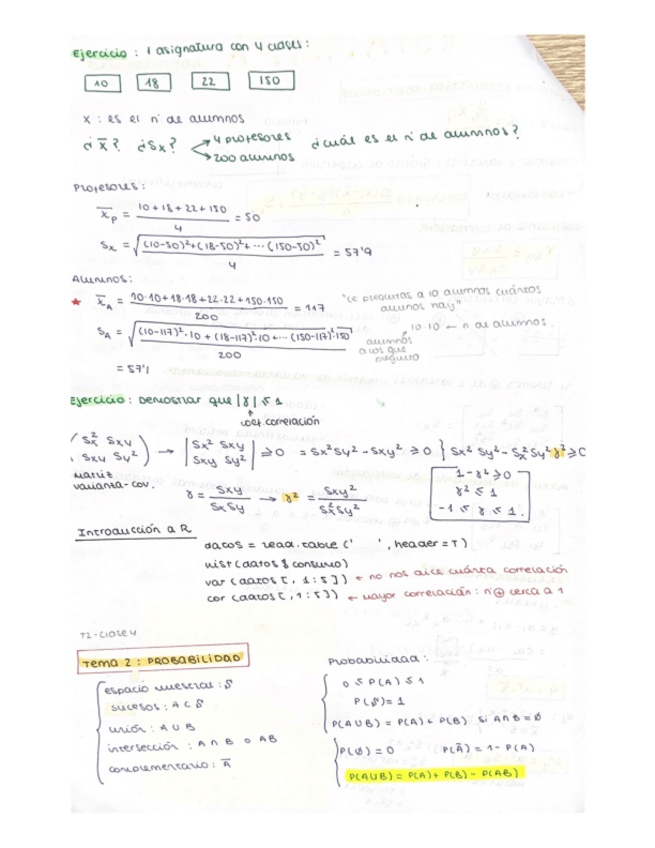 Ejercicio : 1 asignatura con 4 clases :
10 18 22 150
x : es el nº de alumnos
¿ x̄ ? ¿ Sx ? → 4 profesores ¿ cuál es el nº de alumnos ?
→ 200 alumnos
Profesores :
x̄p = (10 + 18 + 22 + 150) / 4 = 50
Sx = √( ((10-50)² + (18-50)² + ... (150-50)²) / 4 ) = 57'9
Alumnos :
★ x̄A = (10·10 + 18·18 + 22·22 + 150·150) / 200 = 117 "Le preguntas a 10 alumnos cuántos alumnos hay"
SA = √( ((10-117)²·10 + (18-117)²·10 + ... (150-117)²·150) / 200 ) 10·10 ← nº de alumnos.
alumnos a los que pregunto
= 57'1
Ejercicio : Demostrar que |r| ≤ 1
↑ coef. correlación
( Sx² Sxy ; Sxy Sy² ) → | Sx² Sxy ; Sxy Sy² | ≥ 0 = Sx² Sy² - Sxy² ≥ 0 } Sx² Sy² - Sx² Sy² r² ≥ 0
matriz varianza-cov.
r = Sxy / Sx Sy → r² = Sxy² / Sx² Sy²
1 - r² ≥ 0
r² ≤ 1
-1 ≤ r ≤ 1.
Introducción a R
datos = read.table (' ', header = T)
hist (datos $ consumo)
var (datos [ , 1 : 5 ]) ← no nos dice cuánta correlación
cor (datos [ , 1 : 5 ]) ← mayor correlación : nº ⊕ cerca a 1
T2 - Clase 4
Tema 2 : PROBABILIDAD
espacio muestral : S
sucesos : A ⊂ S
unión : A ∪ B
intersección : A ∩ B o AB
complementario : Ā
Probabilidad :
0 ≤ P(A) ≤ 1
P(S) = 1
P(A∪B) = P(A) + P(B) si A∩B = ∅
P(∅) = 0 P(Ā) = 1 - P(A)
P(A∪B) = P(A) + P(B) - P(AB)